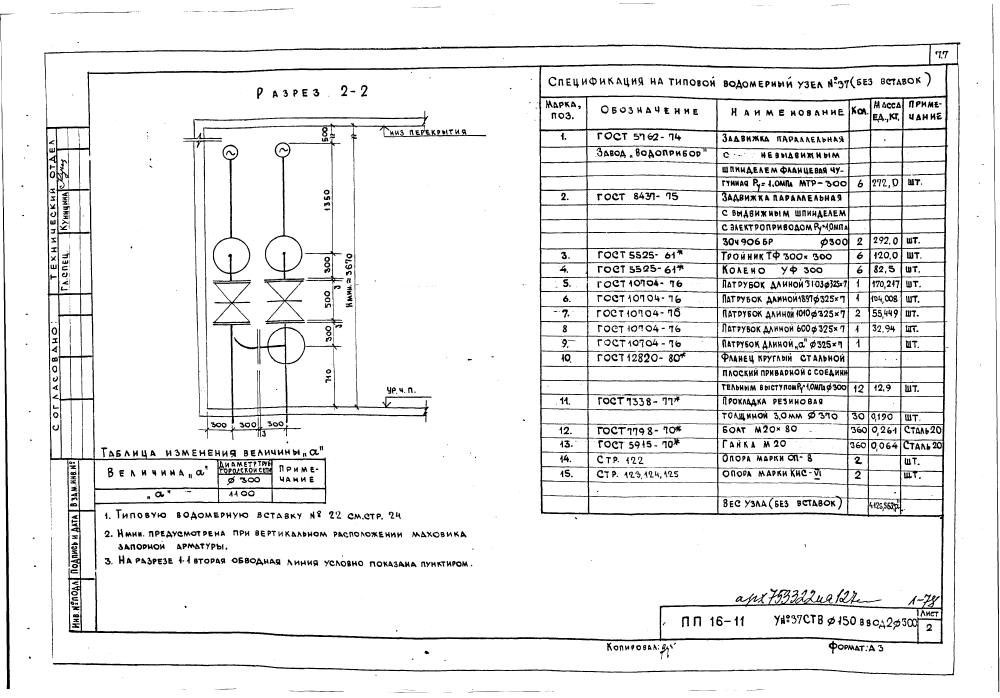 77
РАЗРЕЗ 2-2
НИЗ ПЕРЕКРЫТИЯ
500
1350
300
500
3
300
710
Нмин = 3670
УР. Ч. П.
300 300 300
3
ТАБЛИЦА ИЗМЕНЕНИЯ ВЕЛИЧИНЫ „а"
ВЕЛИЧИНА „а" ДИАМЕТР ТРУБ ГОРОДСКОЙ СЕТИ ПРИМЕ-
ЧАНИЕ
Ø 300
„а" 1100
1. ТИПОВУЮ ВОДОМЕРНУЮ ВСТАВКУ № 22 СМ.СТР. 24
2. Нмин. ПРЕДУСМОТРЕНА ПРИ ВЕРТИКАЛЬНОМ РАСПОЛОЖЕНИИ МАХОВИКА
ЗАПОРНОЙ АРМАТУРЫ.
3. НА РАЗРЕЗЕ 1-1 ВТОРАЯ ОБВОДНАЯ ЛИНИЯ УСЛОВНО ПОКАЗАНА ПУНКТИРОМ.
СПЕЦИФИКАЦИЯ НА ТИПОВОЙ ВОДОМЕРНЫЙ УЗЕЛ №37 (БЕЗ ВСТАВОК)
МАРКА, ПОЗ. ОБОЗНАЧЕНИЕ НАИМЕНОВАНИЕ КОЛ. МАССА ЕД., КГ. ПРИМЕ-
ЧАНИЕ
1. ГОСТ 5762-74 ЗАДВИЖКА ПАРАЛЛЕЛЬНАЯ
ЗАВОД „ВОДОПРИБОР" С НЕВЫДВИЖНЫМ
ШПИНДЕЛЕМ ФЛАНЦЕВАЯ ЧУ-
ГУННАЯ Ру=1,0МПА МТР-300 6 272,0 ШТ.
2. ГОСТ 8437-75 ЗАДВИЖКА ПАРАЛЛЕЛЬНАЯ
С ВЫДВИЖНЫМ ШПИНДЕЛЕМ
С ЭЛЕКТРОПРИВОДОМ Ру=1,0МПА
30Ч906БР Ø300 2 292,0 ШТ.
3. ГОСТ 5525-61* ТРОЙНИК ТФ 300×300 6 120,0 ШТ.
4. ГОСТ 5525-61* КОЛЕНО УФ 300 6 82,5 ШТ.
5. ГОСТ 10704-76 ПАТРУБОК ДЛИНОЙ 3103 Ø325×7 1 170,217 ШТ.
6. ГОСТ 10704-76 ПАТРУБОК ДЛИНОЙ 1897 Ø325×7 1 104,008 ШТ.
7. ГОСТ 10704-76 ПАТРУБОК ДЛИНОЙ 1010 Ø325×7 2 55,449 ШТ.
8 ГОСТ 10704-76 ПАТРУБОК ДЛИНОЙ 600 Ø325×7 1 32,94 ШТ.
9. ГОСТ 10704-76 ПАТРУБОК ДЛИНОЙ „а" Ø325×7 1 ШТ.
10. ГОСТ 12820-80* ФЛАНЕЦ КРУГЛЫЙ СТАЛЬНОЙ
ПЛОСКИЙ ПРИВАРНОЙ С СОЕДИНИ
ТЕЛЬНЫМ ВЫСТУПОМ Ру=1,0МПА Ø300 12 12,9 ШТ.
11. ГОСТ 7338-77* ПРОКЛАДКА РЕЗИНОВАЯ
ТОЛЩИНОЙ 3,0ММ Ø370 30 0,190 ШТ.
12. ГОСТ 7798-70* БОЛТ М20×80 360 0,261 СТАЛЬ 20
13. ГОСТ 5915-70* ГАЙКА М20 360 0,064 СТАЛЬ 20
14. СТР. 122 ОПОРА МАРКИ ОП-8 2 ШТ.
15. СТР. 123, 124, 125 ОПОРА МАРКИ КНС-VI 2 ШТ.
ВЕС УЗЛА (БЕЗ ВСТАВОК)
СОГЛАСОВАНО:
ТЕХНИЧЕСКИЙ ОТДЕЛ
ГЛ.СПЕЦ. КУНИЦИНА
ВЗАМ.ИНВ.№
ПОДПИСЬ И ДАТА
ИНВ.№ПОДЛ.
1-78
ПП 16-11 У№37СТВ Ø150 ВВОД2Ø300 ЛИСТ
2
КОПИРОВАЛ:
ФОРМАТ: А3